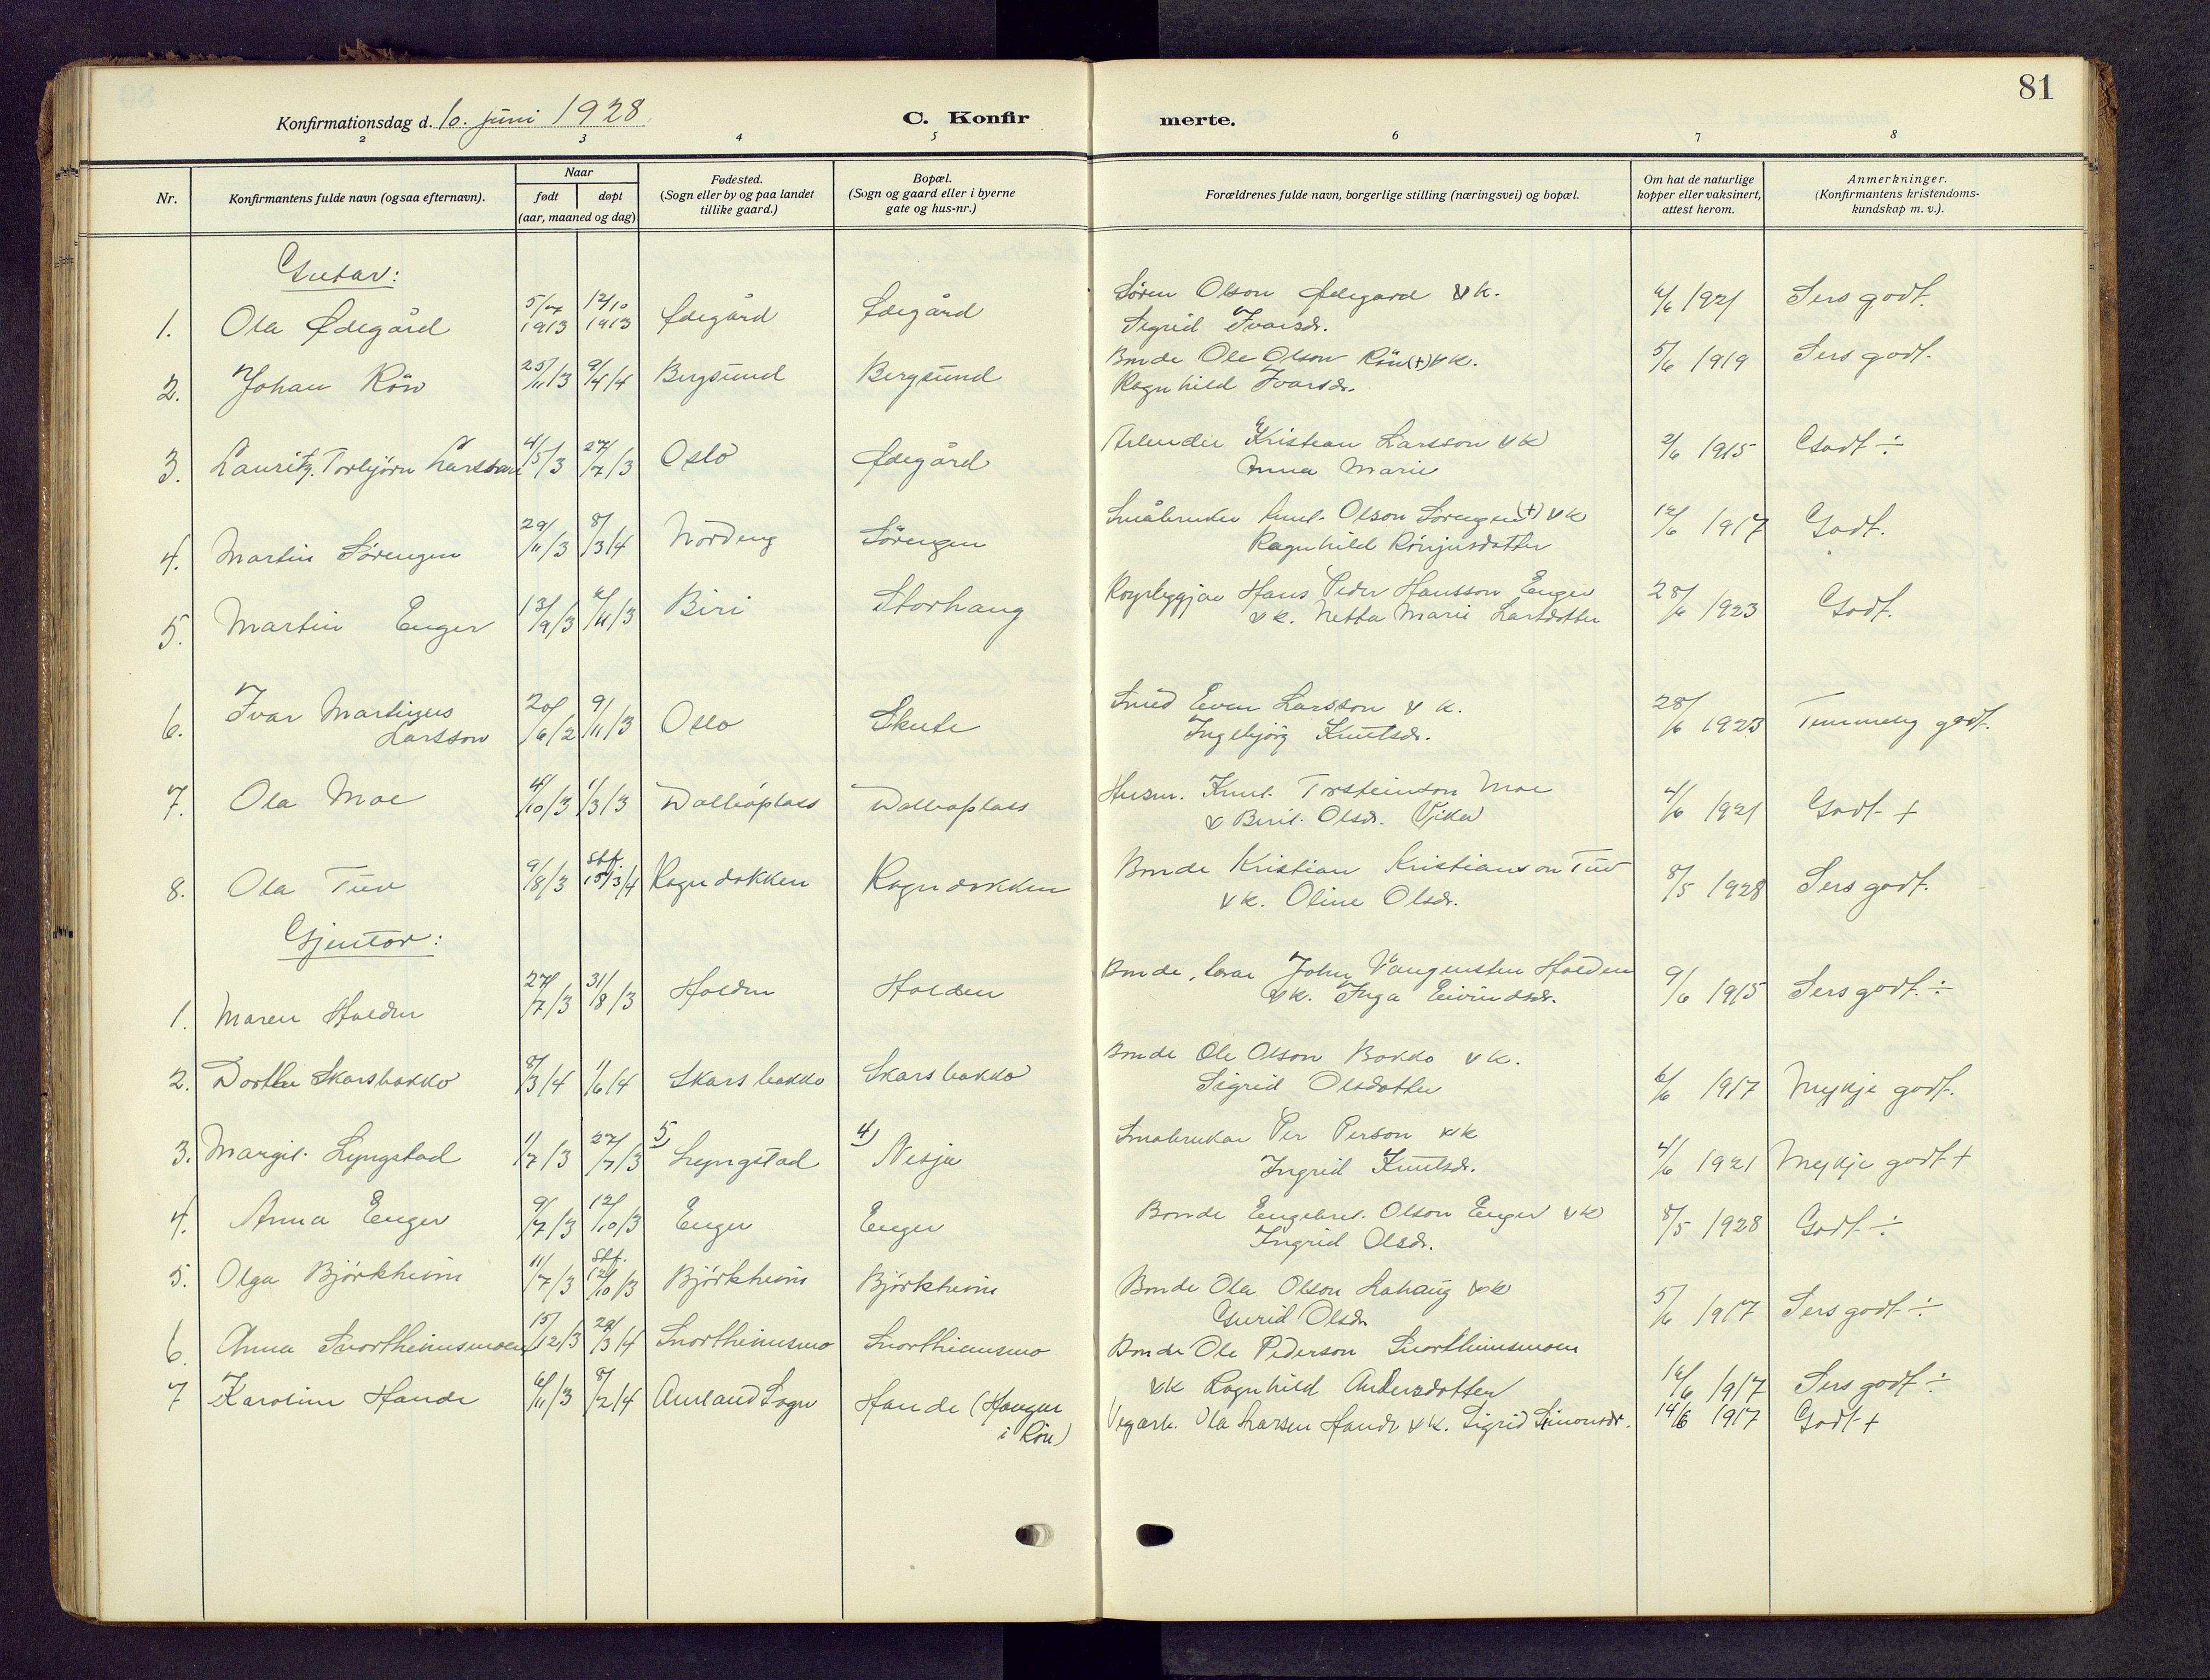 81
Konfirmationsdag d. 10. juni 1928
C. Konfirmerte.
2 3 4 5 6 7 8
Nr. Konfirmantens fulde navn (ogsaa efternavn). Naar født døpt (aar, maaned og dag) Fødested. (Sogn eller by og paa landet tillike gaard.) Bopæl. (Sogn og gaard eller i byerne gate og hus-nr.) Forældrenes fulde navn, borgerlige stilling (næringsvei) og bopæl. Om hat de naturlige kopper eller vaksinert, attest herom. Anmerkninger. (Konfirmantens kristendoms-kundskap m. v.).
Gutar:
1. Ola Ødegård 5/7 1913 12/10 1913 Ødegård Ødegård Søren Olson Ødegard & k. Sigrid Ivarsdr. 4/6 1921 Sers godt.
2. Johan Røn 25/11/3 9/4/4 Bergsund Bergsund Bonde Ole Olson Røn (+) & k. Ragnhild Ivarsdr. 5/6 1919 Sers godt.
3. Lauritz Torbjørn Larsson 4/5/3 27/7/3 Oslo Ødegård Arbeider Kristian Larsson & k Anna Marie 2/6 1915 Godt ÷
4. Martin Sørengen 29/11/3 8/3/4 Nordeng Sørengen Småbruker Knut Olson Sørengen (+) & k Ragnhild Rönjusdotter 12/6 1917 Godt.
5. Martin Enger 13/9/3 /11/3 Biri Storhaug Hans Peder Hansson Enger & k. Netta Marie Larsdotter 28/6 1923 Godt.
6. Ivar Martinus Larsson 20/6/2 9/11/3 Oslo Skute Smed Even Larsson & k. Ingebjörg Knutsdr. 28/6 1923 Temmeleg godt.
7. Ola Moe 4/10/3 1/3/3 Dalbøplass Dalbøplass Husm. Knut Torsteinson Moe & Berit Olsdr. Vika 4/6 1921 Godt +
8. Ola Tuv 9/8/3 stf. 15/3/4 Rogndokken Rogndokken Bonde Kristian Kristianson Tuv & k. Oline Olsdr. 8/5 1928 Sers godt.
Gjentor:
1. Maren Holden 27/7/3 31/8/3 Holden Holden Bonde, lærar John Vangensten Holden & k. Inga Eivindsdr. 9/6 1915 Sers godt. ÷
2. Dorthe Skarsbakko 8/3/4 1/6/4 Skarsbakko Skarsbakko Bonde Ole Olson Bakko & k. Sigrid Olsdotter 6/6 1917 Mykje godt.
3. Margit Lyngstad 11/7/3 27/7/3 5) Lyngstad 4) Nesja Småbrukar Per Person & k Ingrid Knutsdr. 4/6 1921 Mykje godt +
4. Anna Enger 9/7/3 12/10/3 Enger Enger Bonde Engebret Olson Enger & k Ingrid Olsdr. 8/5 1928 Godt ÷
5. Olga Björkheim 11/7/3 stf. 12/10/3 Björkheim Björkheim Bonde Ola Olson Lohaug & k Gurid Olsdr 5/6 1917 Sers godt ÷
6. Anna Snortheimsmoen 15/12/3 29/3/4 Snortheimsmo Snortheimsmo Bonde Ole Pederson Snortheimsmoen & k Ragnhild Andersdotter 12/6 1917 Sers godt ÷
7 Karoline Hande /11/3 8/2/4 Aurland Sogn Hande (Haugen i Røn) Vegarb. Ola Larsen Hande & k. Sigrid Simonsdr. 14/6 1917 Godt +